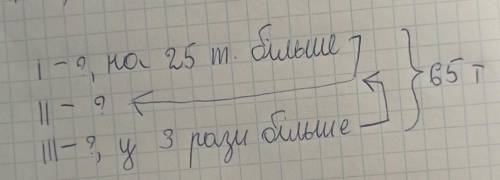 I - ?, на 25 т. більше
II - ?
III - ?, у 3 рази більше
65 т